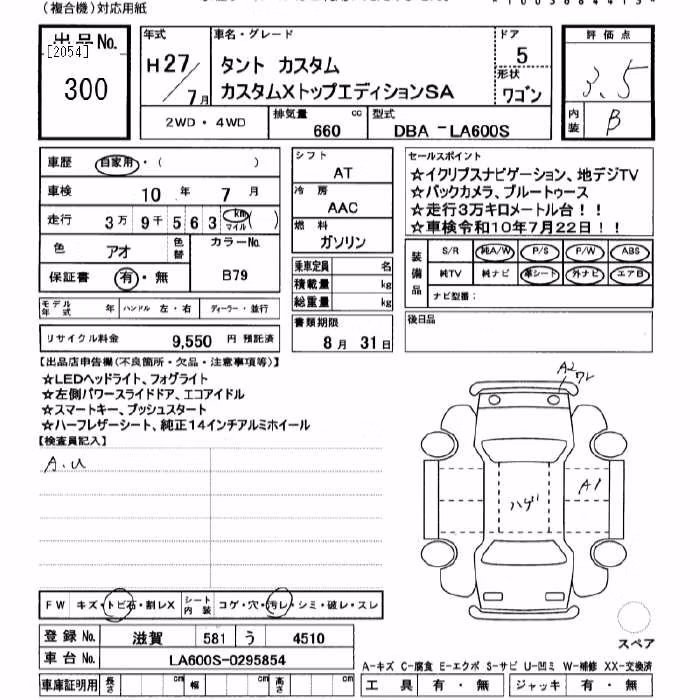 (複合機)対応用紙
出品No.
[2054]
300
年式
H27/7月
車名・グレード
タント カスタム
カスタムXトップエディションSA
ドア
5
形状
ワゴン
評価点
3.5
内装
B
2WD・4WD
排気量 660 cc
型式 DBA -LA600S
車歴 自家用・( )
車検 10年 7月
走行 3万 9千 5 6 3 km マイル ( )
色 アオ 色替
カラーNo. B79
保証書 有・無
モデル年式 年 ハンドル 左・右 ディーラー・並行
リサイクル料金 9,550 円 預託済
シフト
AT
冷房
AAC
燃料
ガソリン
乗車定員 名
積載量 kg
総重量 kg
書類期限
8月 31日
セールスポイント
☆イクリプスナビゲーション、地デジTV
☆バックカメラ、ブルートゥース
☆走行3万キロメートル台!!
☆車検令和10年7月22日!!
装備品
S/R 純A/W P/S P/W ABS
純TV 純ナビ 革シート 外ナビ エアB
ナビ型番:
後日品
【出品店申告欄(不良箇所・欠品・注意事項等)】
☆LEDヘッドライト、フォグライト
☆左側パワースライドドア、エコアイドル
☆スマートキー、プッシュスタート
☆ハーフレザーシート、純正14インチアルミホイール
【検査員記入】
A.U
A2
ハゲ
A1
FW キズ・トビ石・割レX シート内装 コゲ・穴・汚レ・シミ・破レ・スレ
登録No. 滋賀 581 う 4510
車台No. LA600S-0295854
車庫証明用 長さ cm 幅 cm 高さ cm
スペア
A-キズ C-腐食 E-エクボ S-サビ U-凹ミ W-補修 XX-交換済
工具 有・無 ジャッキ 有・無